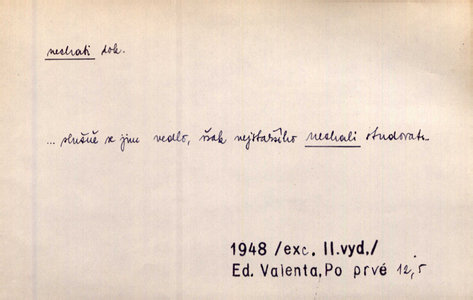 nechati dok.
... slušně se jim vedlo, však nejstaršího nechali studovati.
1948 /exc. II.vyd./
Ed. Valenta, Po prvé 12,5